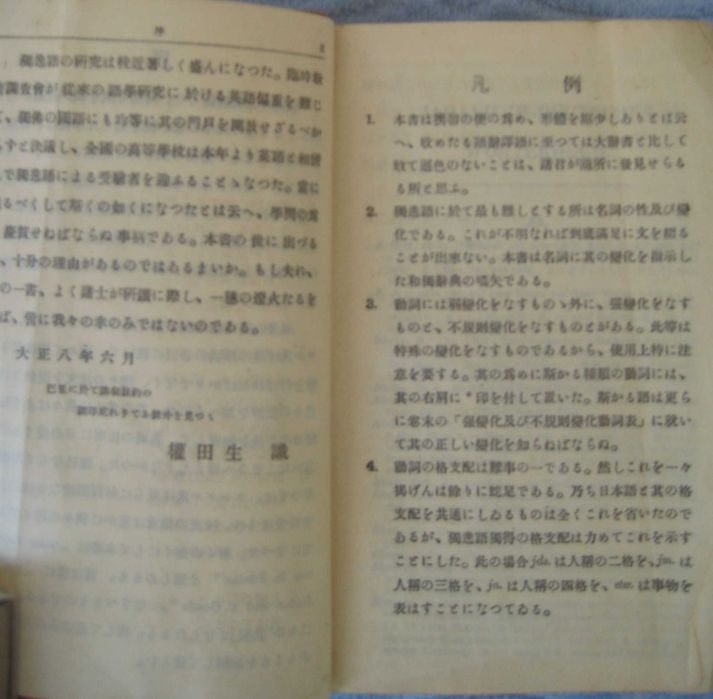 序
獨逸語の研究は輓近著しく盛んになつた。臨時敎
調査會が從來の語學研究に於ける英語偏重を顧じ
て、獨佛の國語にも均等に其の門戶を開放せざるべか
らずと決議し、全國の高等學校は本年より英語と相併
んで獨逸語による受驗者を迎ふることゝなつた。當に
るべくして斯くの如くになつたとは云へ、學問の爲
慶賀せねばならぬ事柄である。本書の後に出づる
、十分の理由があるのではあるまいか。もし夫れ、
の一書、よく諸士が研讀に際し、一臂の燈火たるを
ば、啻に我々の幸のみではないのである。
大正八年六月
巴里に於て講和條約の
調印
權田生識
凡例
1. 本書は携帶の便の爲め、形體を縮少しありとは云
へ、收めたる語辭譯語に至つては大辭書と比して
敢て遜色のないことは、諸君が隨所に發見せらる
る所と思ふ。
2. 獨逸語に於て最も難しとする所は名詞の性及び變
化である。これが不明なれば到底滿足に文を綴る
ことが出來ない。本書は名詞に其の變化を指示し
た和獨辭典の嚆矢である。
3. 動詞には弱變化をなすものゝ外に、强變化をなす
ものと、不規則變化をなすものとがある。此等は
特殊の變化をなすものであるから、使用上特に注
意を要する。其の爲めに斯かる種類の動詞には、
其の右肩に*印を付して置いた。斯かる語は更ら
に卷末の「强變化及び不規則變化動詞表」に就い
て其の正しい變化を知らねばならぬ。
4. 動詞の格支配は難事の一である。然しこれを一々
揭げんは餘りに蛇足である。乃ち日本語と其の格
支配を共通にしゐるものは全くこれを省いたので
あるが、獨逸語獨得の格支配は力めてこれを示す
ことにした。此の場合jds.は人稱の二格を、jm.は
人稱の三格を、jn.は人稱の四格を、etw.は事物を
表はすことになつてゐる。